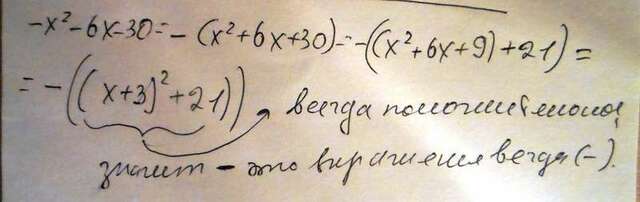 -x²-6x-30=-(x²+6x+30)=-((x²+6x+9)+21)=
=-((x+3)²+21)) всегда положительное,
значит - это выражения всегда (-).